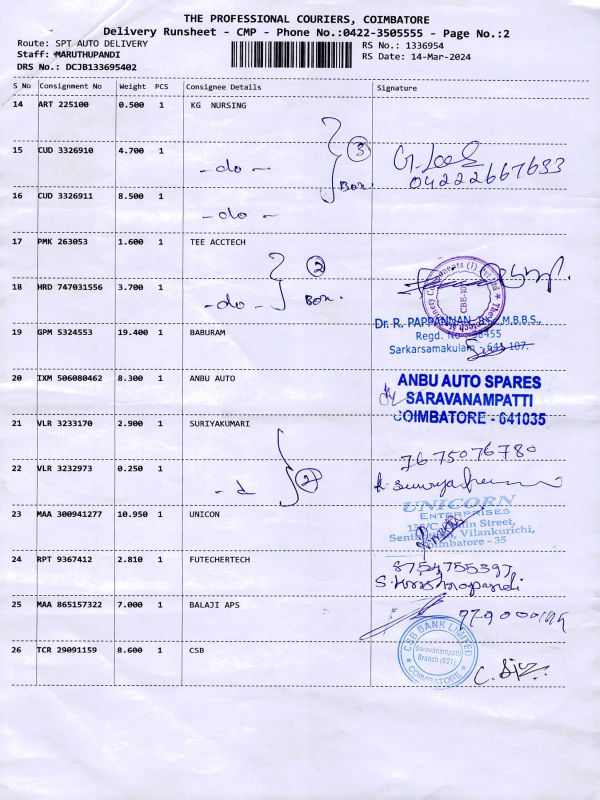 THE PROFESSIONAL COURIERS, COIMBATORE
Delivery Runsheet - CMP - Phone No.:0422-3505555 - Page No.:2
Route: SPT AUTO DELIVERY
RS No.: 1336954
Staff: MARUTHUPANDI
RS Date: 14-Mar-2024
DRS No.: DCJB133695402
S No Consignment No Weight PCS Consignee Details Signature
14 ART 225100 0.500 1 KG NURSING
15 CUD 3326910 4.700 1 - do - 3 Box. 04222667633
16 CUD 3326911 8.500 1 - do -
17 PMK 263053 1.600 1 TEE ACCTECH 2
18 HRD 747031556 3.700 1 - do - Box.
19 GPM 5324553 19.400 1 BABURAM
Dr. R. PAPPANNAN, M.B.B.S.,
Regd. No
Sarkarsamakulam - 641 107.
20 IXM 506080462 8.300 1 ANBU AUTO
ANBU AUTO SPARES
SARAVANAMPATTI
COIMBATORE - 641035
21 VLR 3233170 2.900 1 SURIYAKUMARI 7675076780
22 VLR 3232973 0.250 1 2
23 MAA 300941277 10.950 1 UNICON
UNICORN
ENTERPRISES
Street,
Vilankurichi,
Coimbatore - 35
24 RPT 9367412 2.810 1 FUTECHERTECH 8754755397
25 MAA 865157322 7.000 1 BALAJI APS
26 TCR 29091159 8.600 1 CSB
CSB BANK LIMITED
Saravanampatti
Branch (601)
COIMBATORE